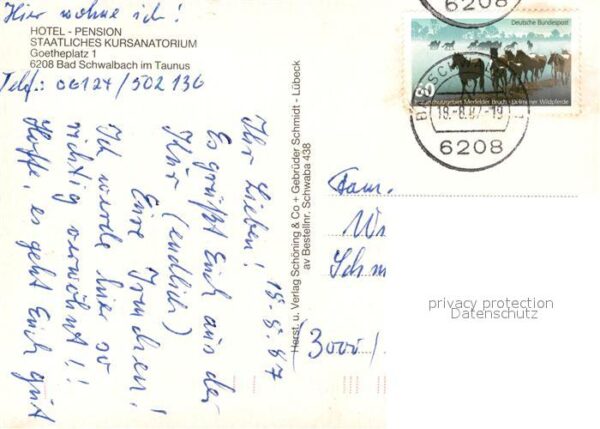 Hier wohne ich!
HOTEL - PENSION
STAATLICHES KURSANATORIUM
Goetheplatz 1
6208 Bad Schwalbach im Taunus
Telf.: 06124/502 136
Ihr Lieben! 15-8-87
Es grüßt Euch aus der
Kur (endlich)
Eure Irmchen!
Ich werde hier so
richtig verwöhnt!!
Hoffe, es geht Euch gut
Herst. u. Verlag Schöning & Co + Gebrüder Schmidt - Lübeck
av Bestellnr. Schwaba 438
6208
Deutsche Bundespost
60
Naturschutzgebiet Merfelder Bruch - Dülmener Wildpferde
19.-8.87-19
6208
Fam.
Schm
3000/
privacy protection
Datenschutz